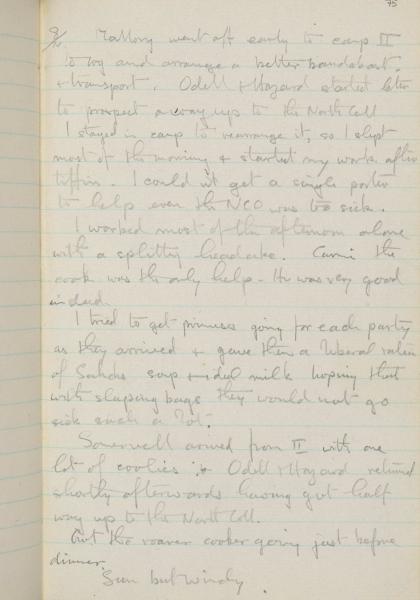 75
9/5 Mallory went off early to camp II
to try and arrange a better bandobast.
& transport. Odell & Hazard started later
to prospect a way up to the North Coll
I stayed in camp to rearrange it, so I slept
most of the morning & started my work after
tiffin. I couldn't get a single porter
to help even the NCO was too sick.
I worked most of the afternoon alone
with a splitting headache. Cami the
cook was the only help - He was very good
indeed
I tried to get primuses going for each party
as they arrived & gave them a liberal ration
of soup & ideal milk hoping that
with sleeping bags they would not go
sick such a lot.
Somervell arrived from II with one
lot of coolies & Odell & Hazard returned
shortly afterwards having got half
way up to the North Coll.
Got the roarer cooker going just before
dinner.
Sun but windy.